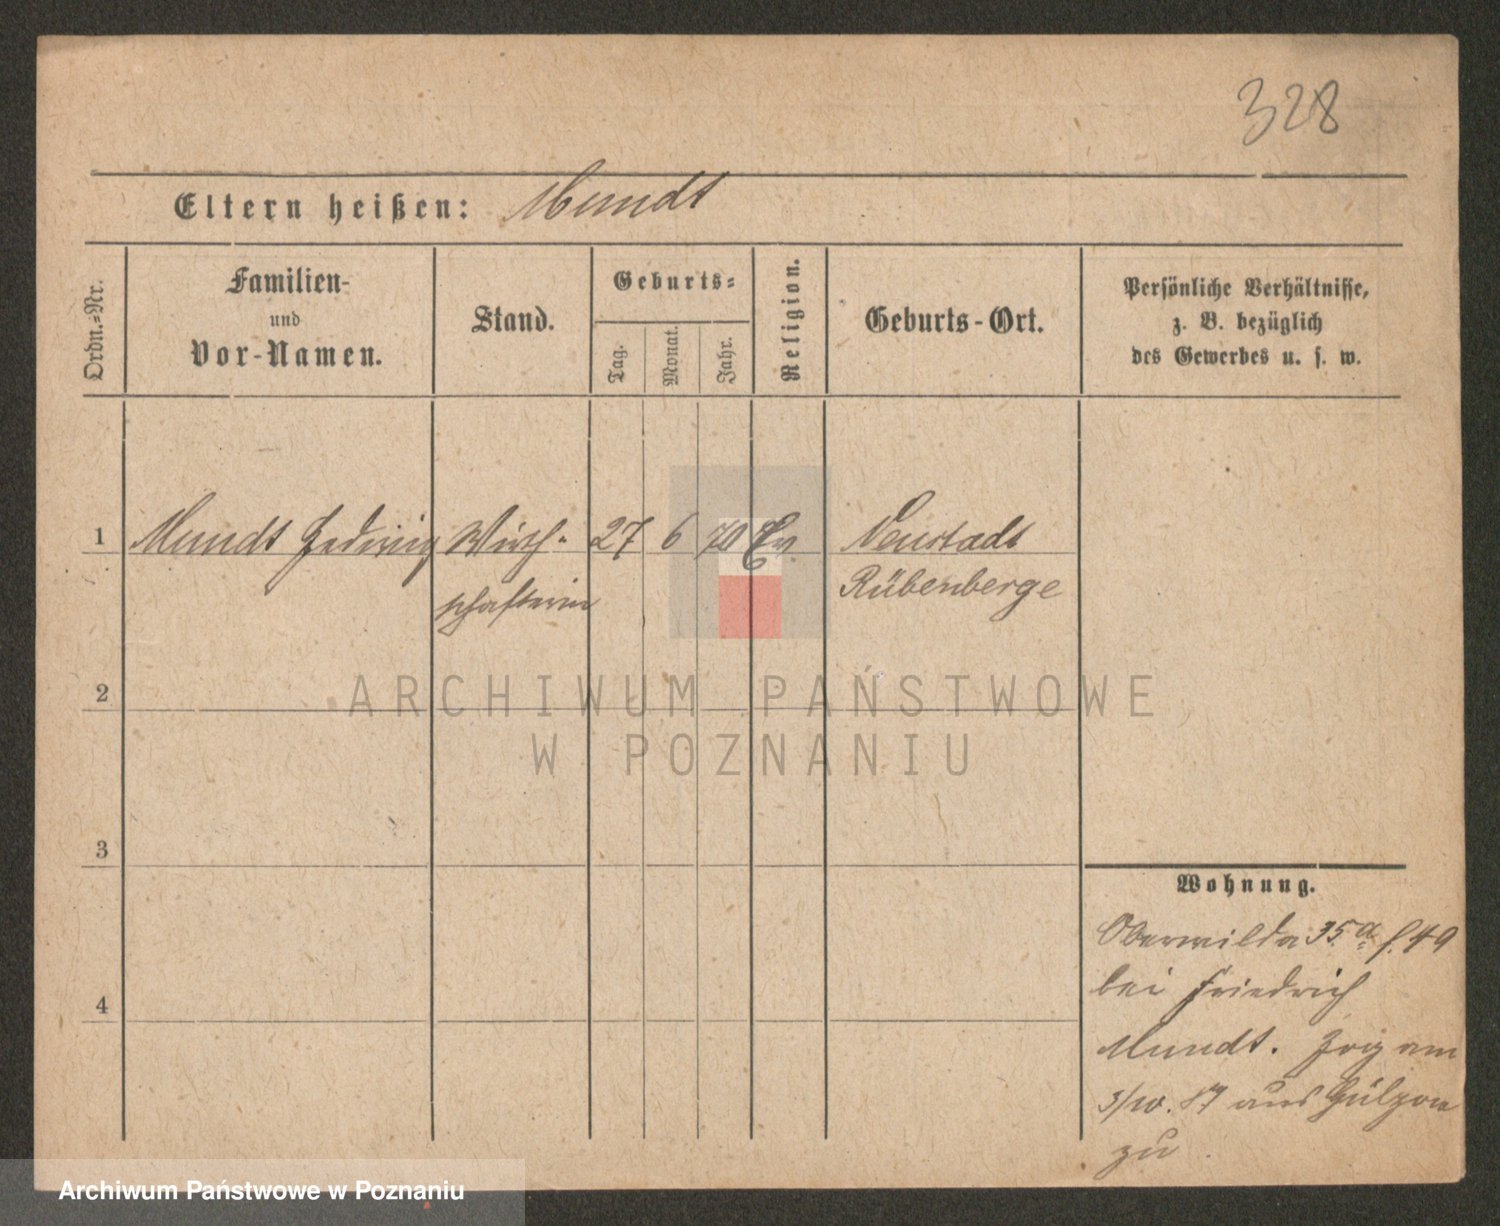 328
Eltern heißen: Mundt
Ordn.-Nr.
Familien-
und
Vor-Namen.
Stand.
Geburts-
Tag.
Monat.
Jahr.
Religion.
Geburts-Ort.
Persönliche Verhältnisse,
z. B. bezüglich
des Gewerbes u. s. w.
1 Mundt Hedwig Wirth- 27 6 70 Ev. Neustadt
schafterin Rübenberge
2
3
4
Wohnung.
Oberwilda 35 a
bei Friedrich
Mundt. Zog am
3/10. 87 aus Gülzow
zu
ARCHIWUM PAŃSTWOWE
W POZNANIU
Archiwum Państwowe w Poznaniu